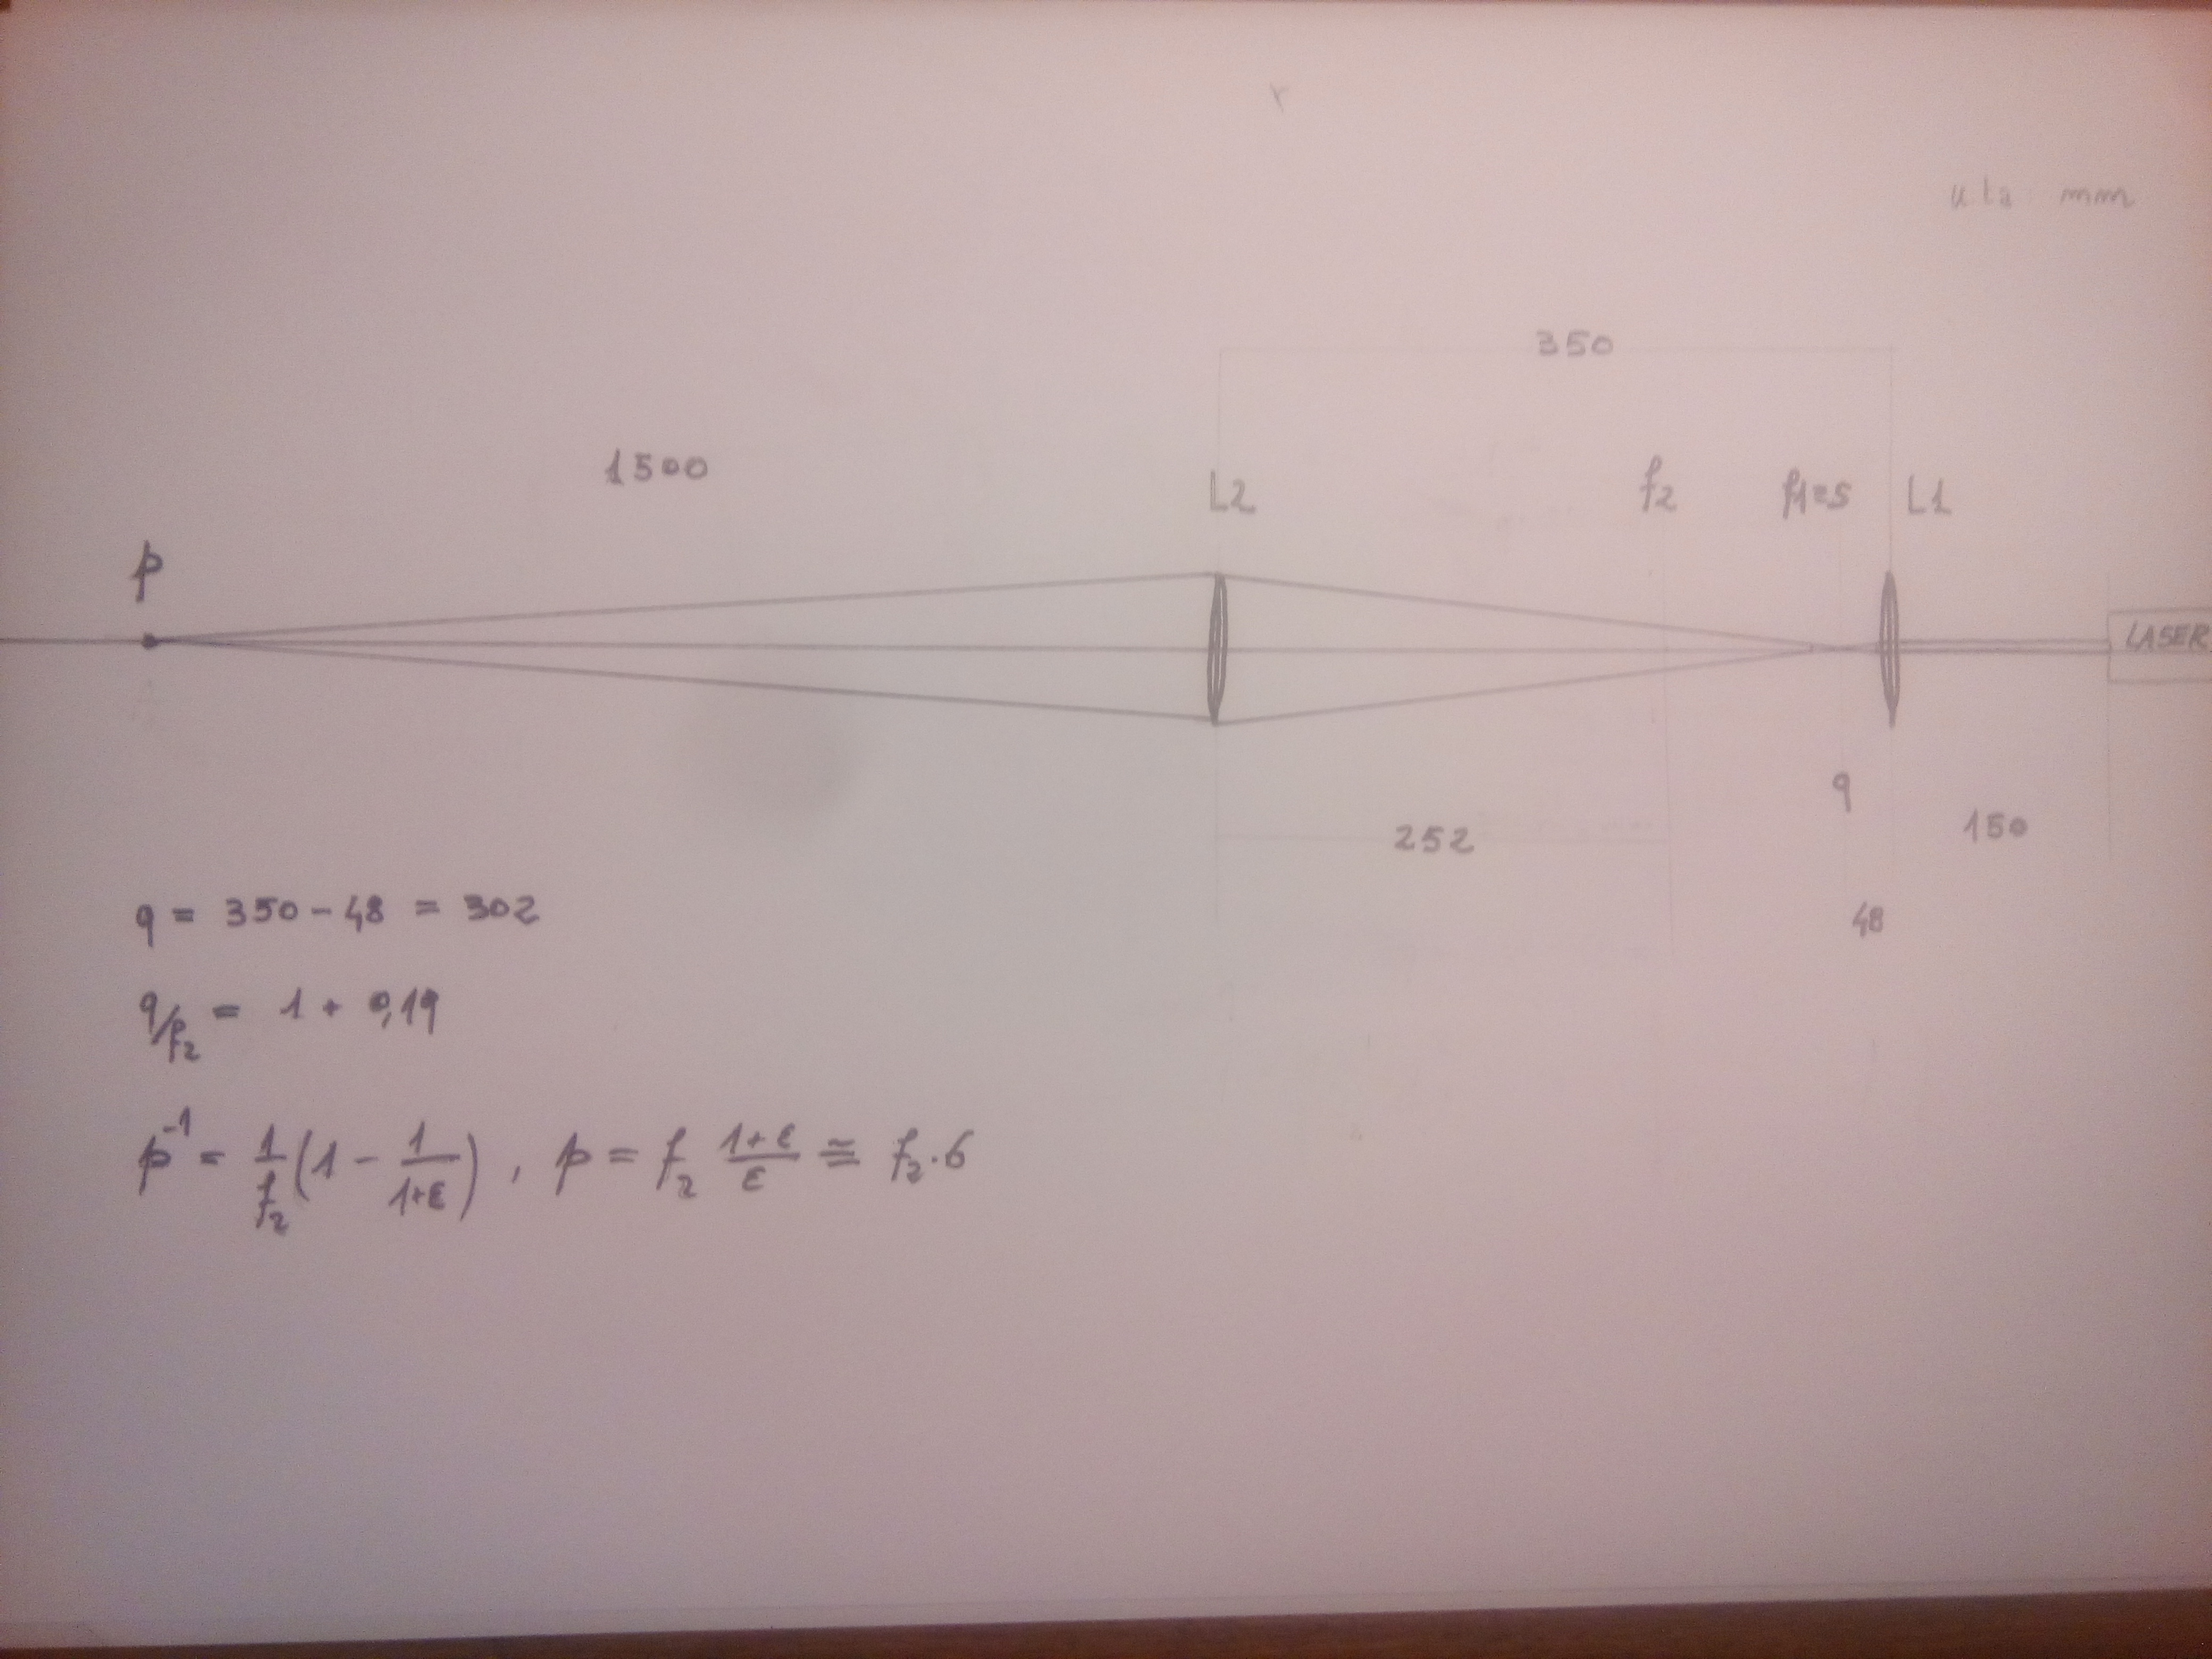 uta mm
350
1500
L2
f₂
f1=5
L1
p
LASER
q
150
252
48
q = 350 - 48 = 302
q/f₂ = 1 + 0,19
p⁻¹ = 1/f₂ (1 - 1/(1+ε)) , p = f₂ (1+ε)/ε ≅ f₂·6